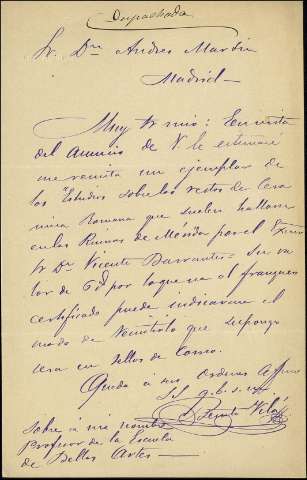 Despachada
Sr. Dn. Andres Martin
Madrid
Muy Sr mio: En vista
del anuncio de V. le estimaré
me remita un ejemplar de
los "Estudios sobre los restos de Cerá
mica Romana que suelen hallarse
en las Ruinas de Mérida por el Exmo
Sr Dn Vicente Barrantes su va
lor de 6 por lo que va al franqueo
certificado puede indicarme el
modo de remitirlo que supongo
sera en sellos de Correo.
Queda a sus ordenes affmo
S.S. q. b. s. m.
Vilá
sobre a mi nombre
Profesor de la Escuela
de Bellas Artes